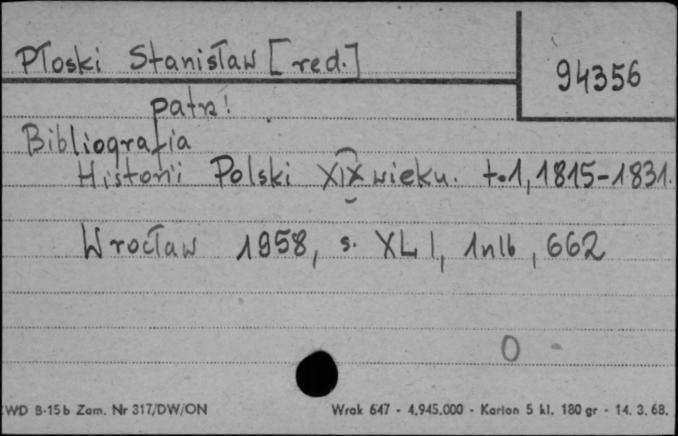 Płoski Stanisław [red.]
94356
patrz!
Bibliografia
Historii Polski XIX wieku. t.1, 1815-1831.
Wrocław 1958, s. XLI, 1nlb, 662
0
WD B-15b Zam. Nr 317/DW/ON Wrak 647 - 4.945.000 - Karton 5 kl. 180 gr - 14. 3. 68.